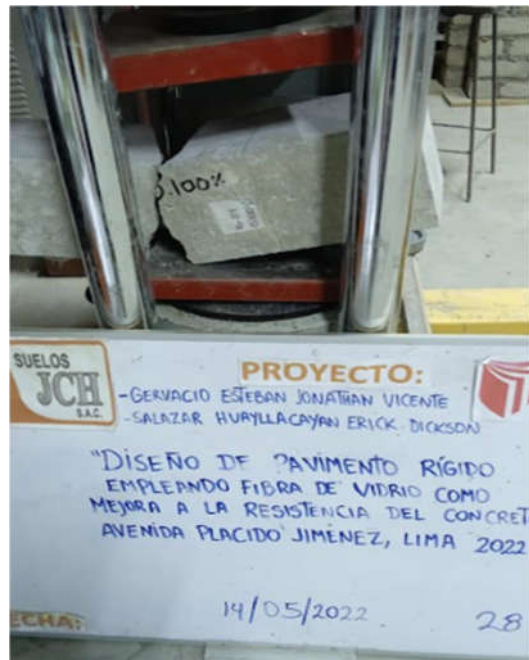 .100%
SUELOS
JCH
S.A.C.
PROYECTO:
-GERVACIO ESTEBAN JONATHAN VICENTE
-SALAZAR HUAYLLACAYAN ERICK DICKSON
"DISEÑO DE PAVIMENTO RÍGIDO
EMPLEANDO FIBRA DE VIDRIO COMO
MEJORA A LA RESISTENCIA DEL CONCRET
AVENIDA PLACIDO JIMENEZ, LIMA 2022
ECHA:
14/05/2022
28